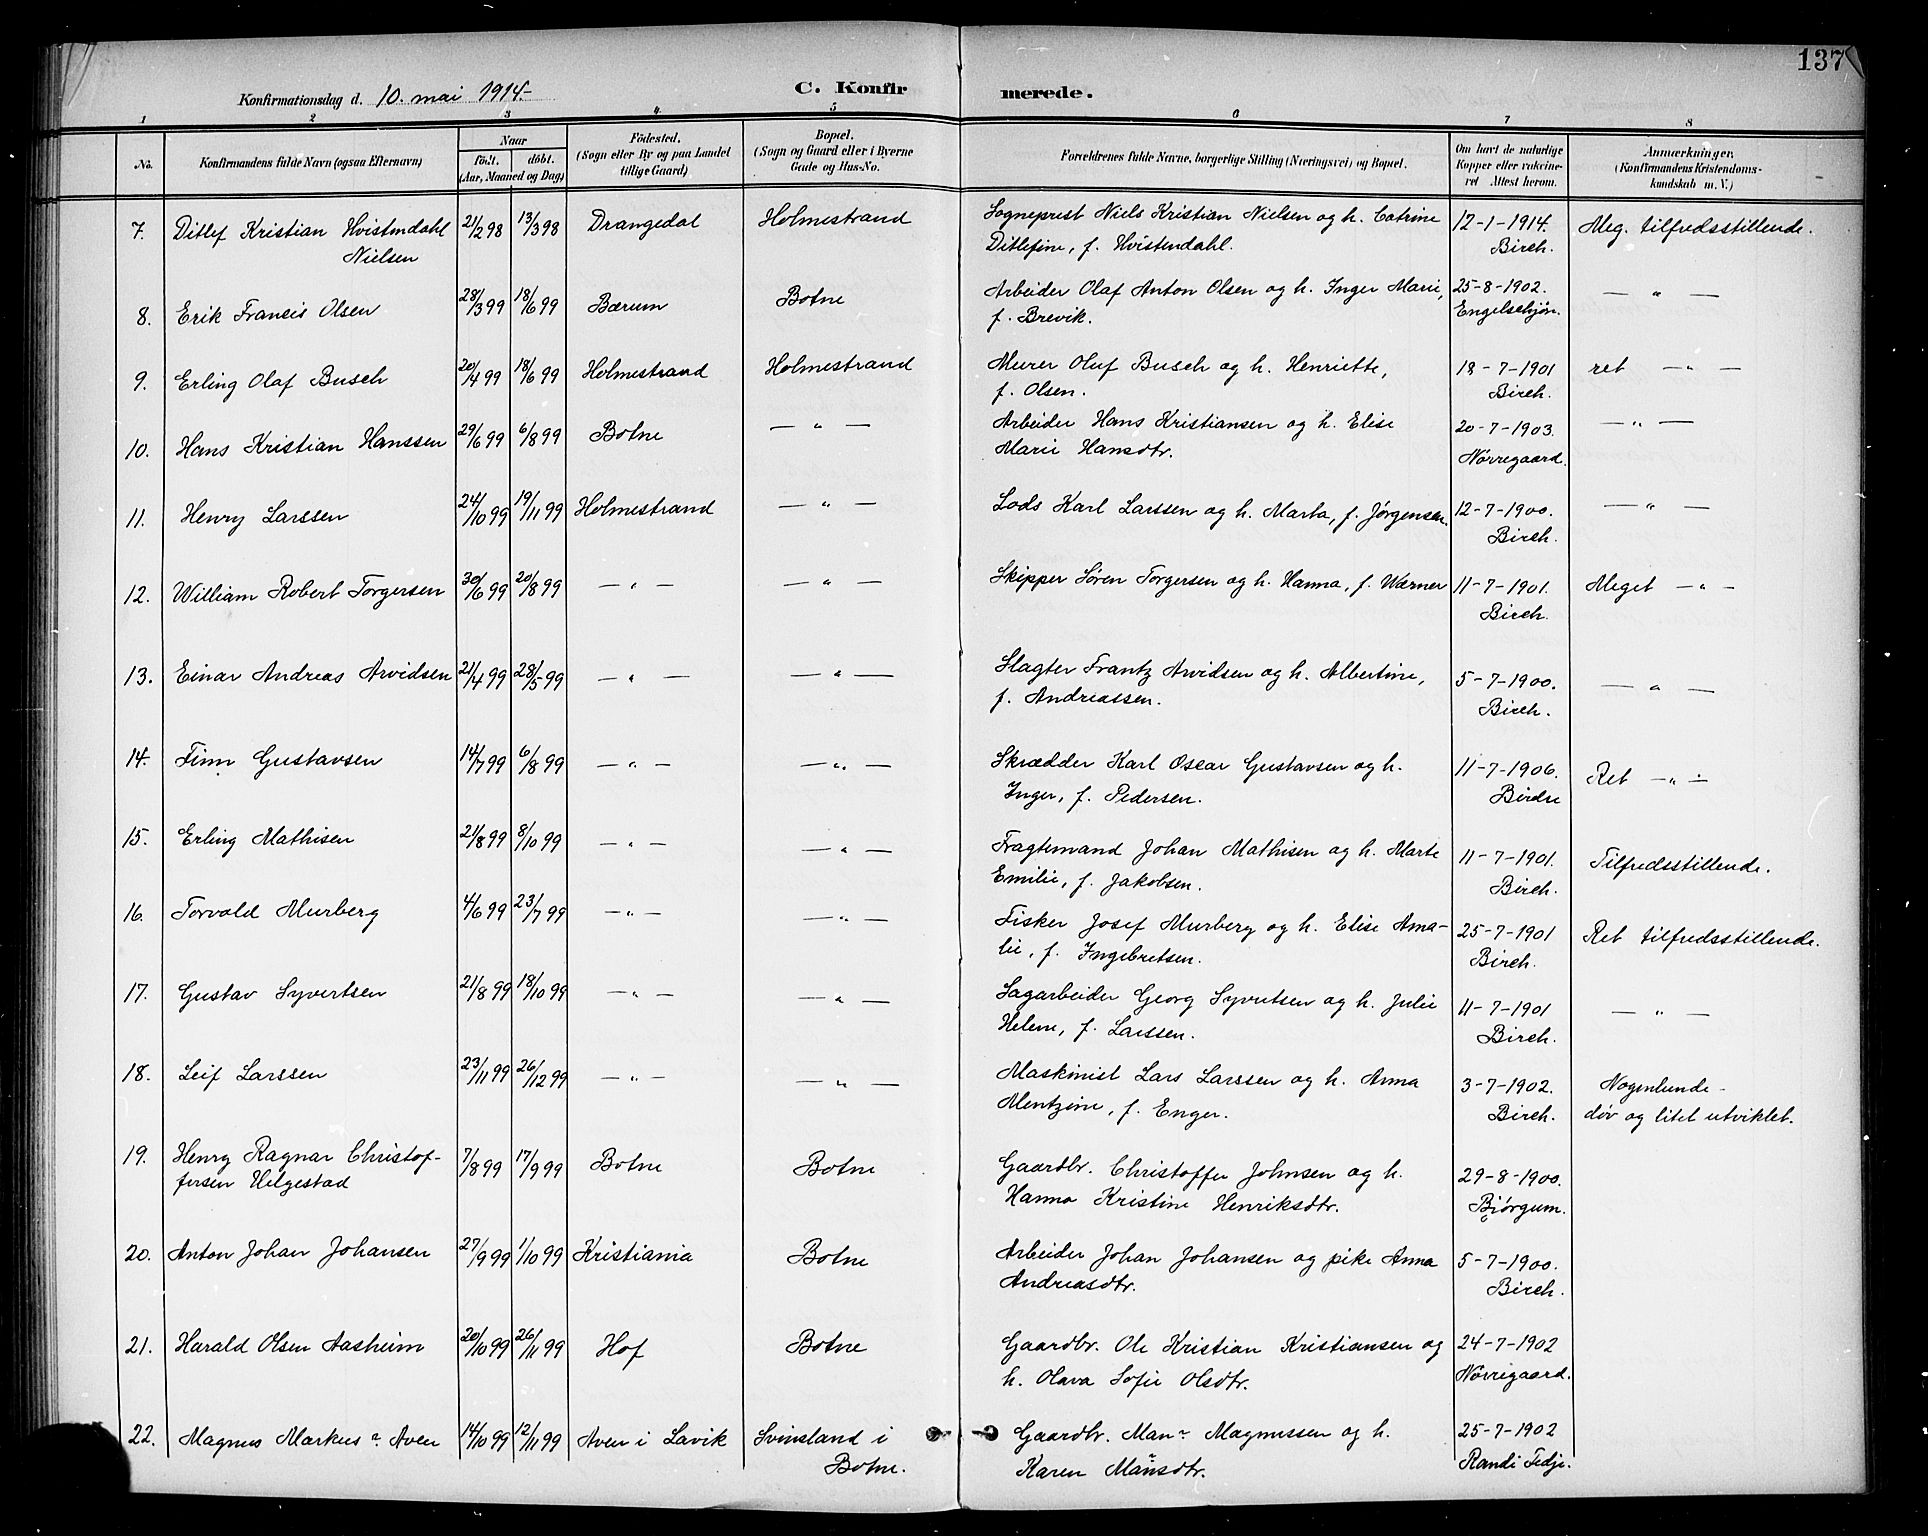 137
Konfirmationsdag d. 10. mai 1914. C. Konfirmerede.
1 2 3 4 5 6 7 8
No. Konfirmandens fulde Navn (ogsaa Efternavn) Naar født. døbt. (Aar, Maaned og Dag) Födested. (Sogn eller By og paa Landet tillige Gaard) Bopæl. (Sogn og Gaard eller i Byerne Gade og Hus-No. Forældrenes fulde Navne, borgerlige Stilling (Næringsvei) og Bopæl. Om havt de naturlige Kopper eller vakcineret Attest herom. Anmærkninger. (Konfirmandens Kristendomskundskab m. V.)
7. Ditlef Kristian Hvistendahl 21/2 98 13/3 98 Drangedal Holmestrand Sogneprest Niels Kristian Nielsen og h. Catrine 12-1-1914. Meg. tilfredsstillende.
Nielsen Ditlefine, f. Hvistendahl. Birch.
8. Erik Francis Olsen 28/3 99 18/6 99 Bærum Botne Arbeider Olaf Anton Olsen og h. Inger Marie, 25-8-1902. — " —
f. Brevik. Engelschjøn.
9. Erling Olaf Busch 20/4 99 18/6 99 Holmestrand Holmestrand Murer Oluf Busch og h. Henriette, 18-7-1901 ret — " —
f. Olsen. Birch.
10. Hans Kristian Hanssen 29/6 99 6/8 99 Botne — " — Arbeider Hans Kristiansen og h. Elise 20-7-1903. — " —
Marie Hansdtr. Nørregaard.
11. Henry Larssen 24/10 99 19/11 99 Holmestrand — " — Lods Karl Larssen og h. Marta, f. Jørgensen. 12-7-1900. — " —
Birch.
12. William Robert Torgersen 30/6 99 20/8 99 — " — — " — Skipper Søren Torgersen og h. Hanna, f. Wærner 11-7-1901. Meget — " —
Birch.
13. Einar Andreas Arvidsen 21/4 99 28/5 99 — " — — " — Slagter Frantz Arvidsen og h. Albertine, 5-7-1900. — " —
f. Andreassen. Birch.
14. Finn Gustavsen 14/7 99 6/8 99 — " — — " — Skrædder Karl Oscar Gustavsen og h. 11-7-1906. Ret — " —
Inger, f. Pedersen.
15. Erling Mathisen 21/8 99 8/10 99 — " — — " — Fragtemand Johan Mathisen og h. Marte 11-7-1901. Tilfredsstillende.
Emilie, f. Jakobsen. Birch.
16. Torvald Murberg 4/6 99 23/7 99 — " — — " — Fisker Josef Murberg og h. Elise Ama- 25-7-1901 Ret tilfredsstillende.
lie, f. Ingebretsen. Birch.
17. Gustav Syvertsen 21/8 99 18/10 99 — " — — " — Sagarbeider Georg Syvertsen og h. Julie 11-7-1901 — " —
Helene, f. Larssen. Birch.
18. Leif Larssen 23/11 99 26/12 99 — " — — " — Maskinist Lars Larssen og h. Anna 3-7-1902. Nogenlunde -
Mentzine, f. Enger. Birch. døv og litet utviklet.
19. Henry Ragnar Christof- 7/8 99 17/9 99 Botne Botne Gaardbr. Christoffer Johnsen og h. 29-8-1900.
fersen Helgestad Hanna Kristine Henriksdtr. Bjørgum.
20. Anton Johan Johansen 27/9 99 1/10 99 Kristiania Botne Arbeider Johan Johansen og pike Anna 5-7-1900.
Andreasdtr. Birch.
21. Harald Olsen Aasheim 20/10 99 26/11 99 Hof Botne Gaardbr. Ole Kristian Kristiansen og 24-7-1902
h. Olava Sofie Olsdtr. Nørregaard.
22. Magnus Markus Aven 14/10 99 12/11 99 Aven i Lavik Svinsland i Gaardbr. Magnussen og h. 25-7-1902
Botne. Karen Månsdtr. Randi Tedje.